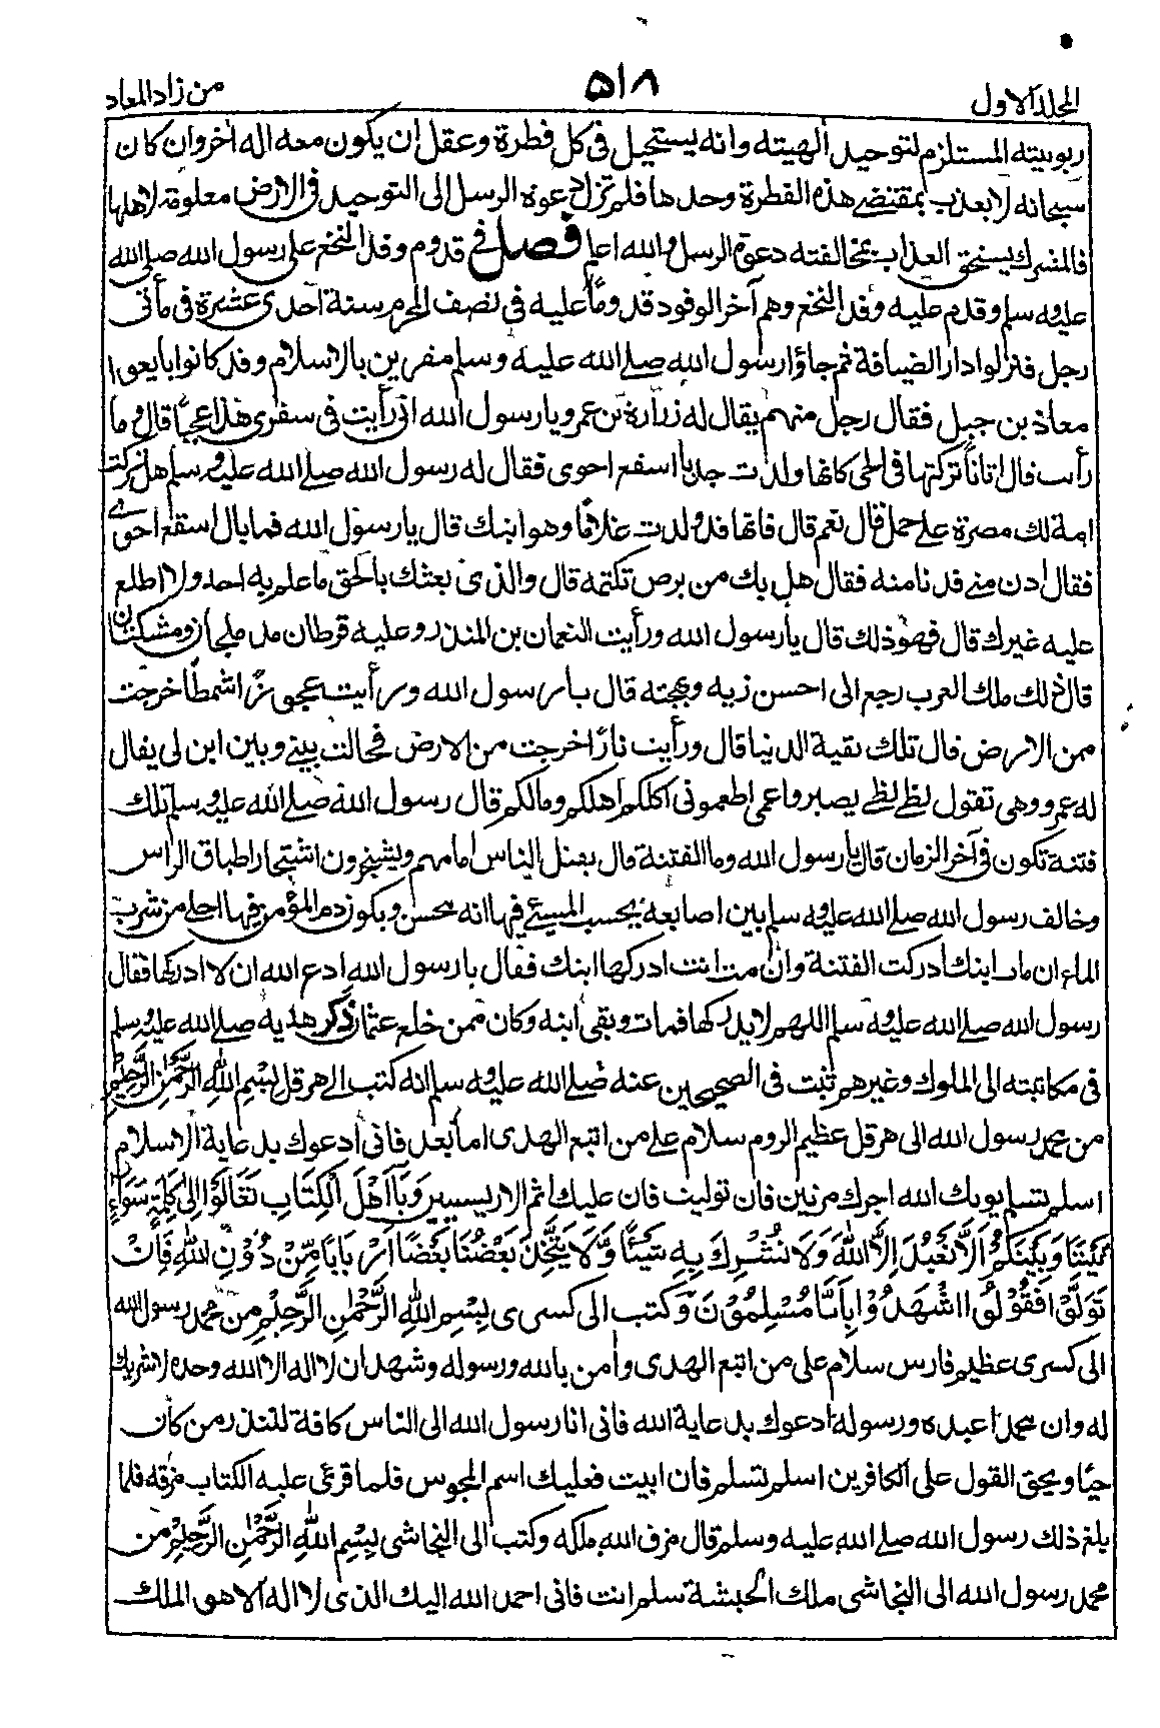 المجلد الاول
٥١٨
من زاد المعاد
ربوبيته المستلزم لتوحيد الهيته وانه يستحيل فى كل فطرة وعقل ان يكون معه اله آخر وان كان
سبحانه لا يعذب بمقتضے هذه الفطرة وحدها فلم تزل دعوة الرسل الى التوحيد فى الارض معلومة لاهلها
فالمشرك يستحق العذاب بمخالفته دعوة الرسل والله اعلم فصل فے قدوم وفد النخع على رسول الله صلى الله
عليه وسلم وقدم عليه وفد النخع وهم آخر الوفود قدوما عليه فى نصف المحرم سنة احدى عشرة فى مأتى
رجل فنزلوا دار الضيافة ثم جاؤا رسول الله صلے الله عليه وسلم مقرين بالاسلام وقد كانوا بايعوا
معاذ بن جبل فقال رجل منهم يقال له زرارة بن عمرو يا رسول الله انى رأيت فى سفرى هذا عجبا قال وما
رأيت قال اتانا تركتها فى الحى كانها ولدت جديا اسفع احوى فقال له رسول الله صلے الله عليه وسلم هل تركت
امة لك مصرة على حمل قال نعم قال فانها قد ولدت غلاما وهو ابنك قال يا رسول الله فما بال اسفع احوى
فقال ادن منے فدنا منه فقال هل بك من برص تكتمه قال والذى بعثك بالحق ما علم به احد ولا اطلع
عليه غيرك قال فهو ذلك قال يا رسول الله ورأيت النعمان بن المنذر وعليه قرطان مدملجان ومسكتان
قال ذلك ملك العرب رجع الى احسن زيه وبهجته قال يا رسول الله ورأيت عجوزا شمطا خرجت
من الارض قال تلك بقية الدنيا قال ورأيت نارا خرجت من الارض فحالت بينے وبين ابن لى يقال
له عمرو وهى تقول لظے لظے بصير واعمى اطعمونى اكلكم اهلكم ومالكم قال رسول الله صلے الله عليه وسلم تلك
فتنة تكون فى آخر الزمان قال يا رسول الله وما الفتنة قال يقتل الناس امامهم ويشتجرون اشتجار اطباق الراس
وخالف رسول الله صلے الله عليه وسلم بين اصابعه يحسب المسيئے فيها انه محسن ويكون دم المؤمن فيها احلے من شرب
الماء ان مات ابنك ادركت الفتنة وان مت انت ادركها ابنك فقال يا رسول الله ادع الله ان لا ادركها فقال
رسول الله صلے الله عليه وسلم اللهم لا يدركها فمات وبقى ابنه وكان ممن خلع عثمان ذكر هديه صلے الله عليه وسلم
فى مكاتبته الى الملوك وغيرهم ثبت فى الصحيحين عنه صلے الله عليه وسلم انه كتب الے هرقل بِسْمِ اللهِ الرَّحْمٰنِ الرَّحِيْمِ
من محمد رسول الله الى هرقل عظيم الروم سلام علے من اتبع الهدى اما بعد فانى ادعوك بدعاية الاسلام
اسلم تسلم يوتك الله اجرك مرتين فان توليت فان عليك اثم الاريسيين وَيَا اَهْلَ الْكِتَابِ تَعَالَوْا اِلىٰ كَلِمَةٍ سَوَاءٍ
بَيْنَنَا وَبَيْنَكُمْ اَلَّا نَعْبُدَ اِلَّا اللهَ وَلَا نُشْرِكَ بِهِ شَيْئًا وَّلَا يَتَّخِذَ بَعْضُنَا بَعْضًا اَرْبَابًا مِّنْ دُوْنِ اللهِ فَاِنْ
تَوَلَّوْا فَقُوْلُوا اشْهَدُوْا بِاَنَّا مُسْلِمُوْنَ وكتب الى كسرى بِسْمِ اللهِ الرَّحْمٰنِ الرَّحِيْمِ من محمد رسول الله
الى كسرى عظيم فارس سلام على من اتبع الهدى وآمن بالله ورسوله وشهد ان لا اله الا الله وحده لا شريك
له وان محمدا عبده ورسوله ادعوك بدعاية الله فانى انا رسول الله الى الناس كافة لتنذر من كان
حيا ويحق القول على الكافرين اسلم تسلم فان ابيت فعليك اسم المجوس فلما قرئ عليه الكتاب مزقه فلما
بلغ ذلك رسول الله صلے الله عليه وسلم قال مزق الله ملكه وكتب الى النجاشى بِسْمِ اللهِ الرَّحْمٰنِ الرَّحِيْمِ من
محمد رسول الله الى النجاشى ملك الحبشة سلم انت فانى احمد الله اليك الذى لا اله الا هو الملك